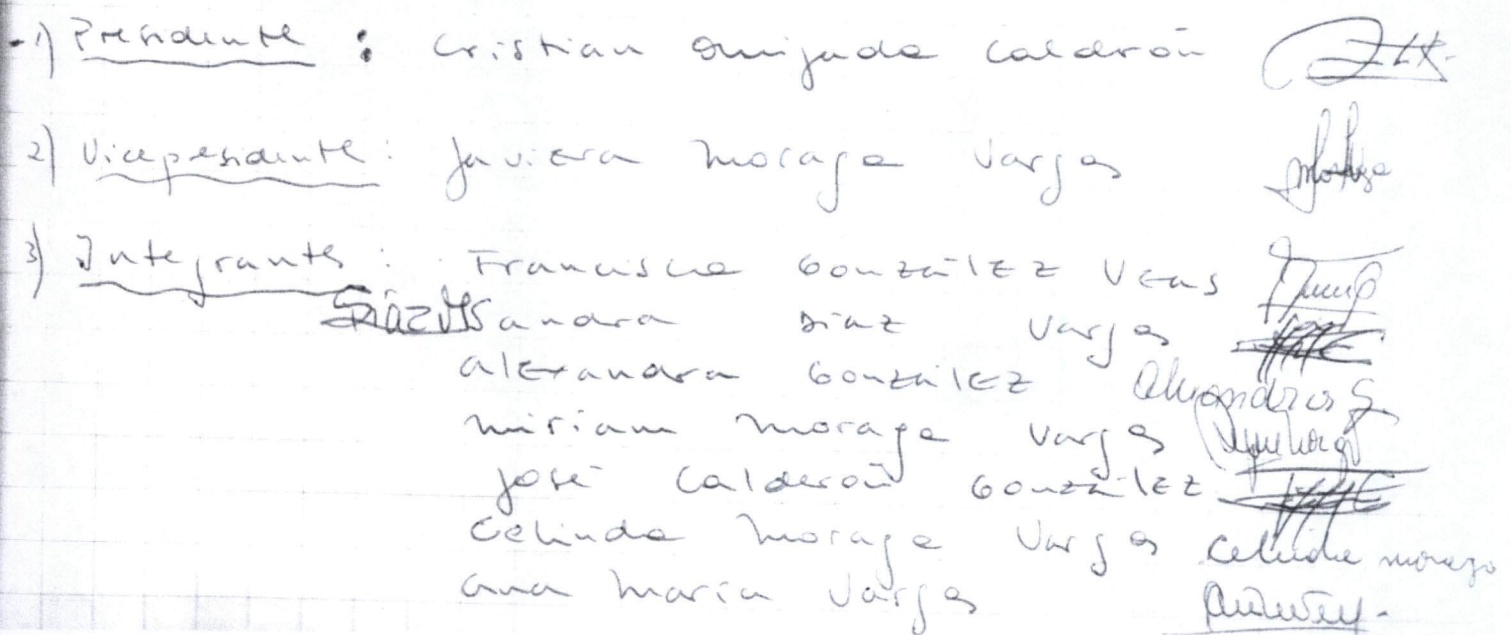 1) Presidente : Cristian Quijada Calderón
2) Vicepresidente: Javiera Moraga Vargas
3) Integrantes : Francisca González Veas
Sandra Diaz Vargas
Alexandra González
Miriam Moraga Vargas
José Calderón González
Celinda Moraga Vargas Celinda Moraga
Ana María Vargas